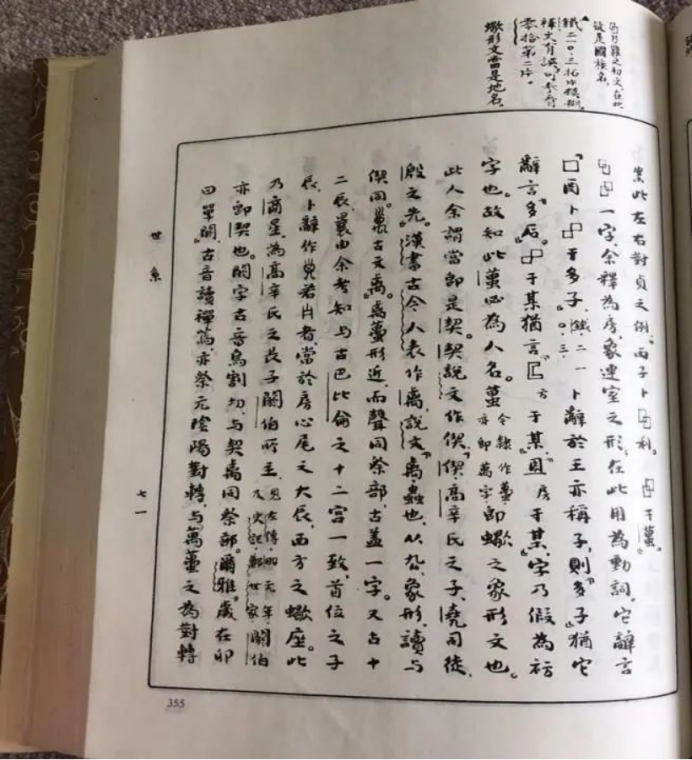 乃雖之初文,在此
疑是國族名。
鐵二一〇·三拓本模糊,
釋文有誤,可參看
零拾第二片。
蠍形文當是地名。
案此左右對貞之例。丙子卜 利。 于蠆。
一字,余釋為房,象連室之形,在此用為動詞。它辭言
「囗酉卜 于多子」鐵二一〇·三。卜辭於王亦稱子,則「多子」猶它
辭言「多后」。 于某猶言「匚方于某」, 于某」,字乃假為祊
字也。故知此蠆必為人名。蠆今隸作蠆,亦即萬字。即蠍之象形文也。
此人余謂當即是契。契說文作偰「偰,高辛氏之子,堯司徒,
殷之先。」漢書古今人表作禼,說文「禼,蟲也,从厹,象形,讀與
偰同。 古文禼。」禼蠆形近,而聲同祭部,古蓋一字。又古十
二辰,曩由余考知與古巴比侖之十二宮一致,首位之子
辰,卜辭作 若 者,當於房心尾之大辰,西方之蠍座。此
乃商星,為高辛氏之長子閼伯所主。見左傳昭元年,及史記鄭世家。閼伯
亦即契也。閼字古音烏割切,與契禼同祭部。爾雅「歲在卯
曰單閼」,古音讀禪蔫,亦祭元陰陽對轉,與萬蠆之為對轉
世系
七一
355